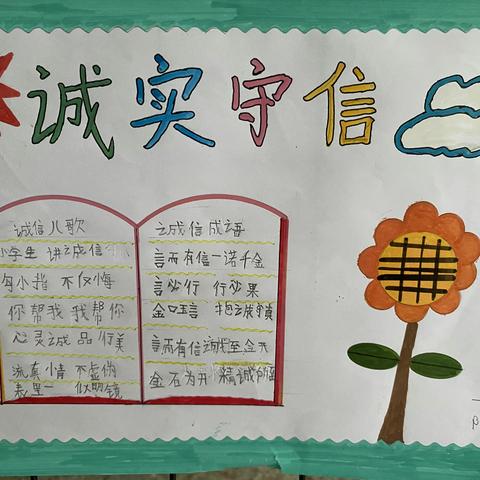 诚实守信
诚信儿歌
小学生 讲诚信
勾小指 不反悔
你帮我 我帮你
心灵诚 品行美
流真情 不虚伪
表里一 似明镜
诚信成语
言而有信 一诺千金
言必行 行必果
金口玉言 抱诚守真
言而有信 诚至金开
金石为开 精诚所至